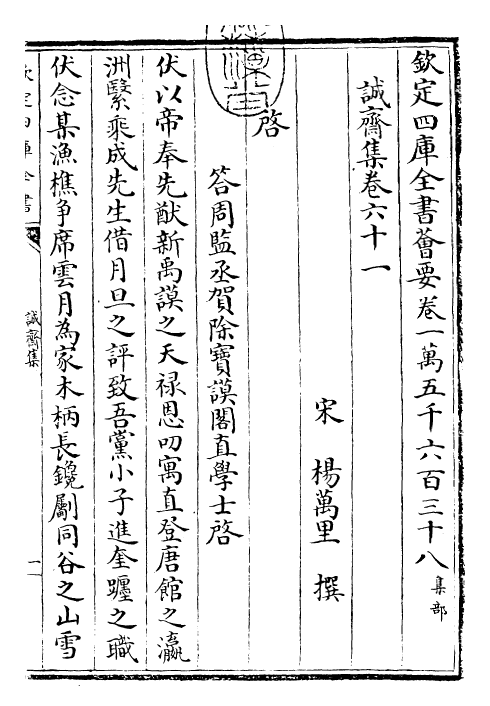 欽定四庫全書薈要卷一萬五千六百三十八 集部
誠齋集卷六十一
宋 楊萬里 撰
啓
答周監丞賀除寶謨閣直學士啓
伏以帝奉先猷新禹謨之天禄恩叨寓直登唐館之瀛
洲繄乘成先生借月旦之評致吾黨小子進奎躔之職
伏念某漁樵争席雲月為家木柄長鑱劚同谷之山雪
欽定四庫全書
誠齋集
一